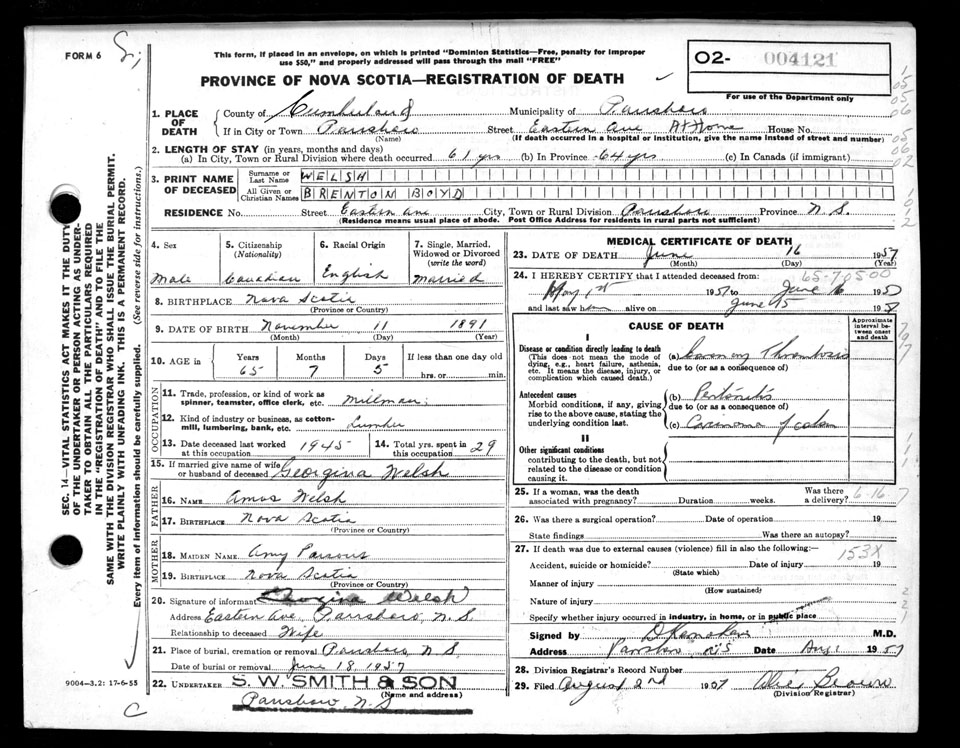 FORM 6
This form, if placed in an envelope, on which is printed "Dominion Statistics—Free, penalty for improper
use $50," and properly addressed will pass through the mail "FREE"
PROVINCE OF NOVA SCOTIA—REGISTRATION OF DEATH
02- 004121
For use of the Department only
SEC. 14—VITAL STATISTICS ACT MAKES IT THE DUTY
OF THE UNDERTAKER OR PERSON ACTING AS UNDER-
TAKER TO OBTAIN ALL THE PARTICULARS REQUIRED
IN THE "REGISTRATION OF DEATH" AND TO FILE THE
SAME WITH THE DIVISION REGISTRAR WHO SHALL ISSUE THE BURIAL PERMIT.
WRITE PLAINLY WITH UNFADING INK. THIS IS A PERMANENT RECORD.
Every item of information should be carefully supplied. (See reverse side for instructions.)
1. PLACE OF DEATH
County of Cumberland Municipality of Parrsboro
If in City or Town Parrsboro Street Eastern Ave At Home House No.
(Name) (If death occurred in a hospital or institution, give the name instead of street and number)
2. LENGTH OF STAY (in years, months and days)
(a) In City, Town or Rural Division where death occurred 61 yrs (b) In Province 64 yrs (c) In Canada (if immigrant)
3. PRINT NAME OF DECEASED
Surname or Last Name WELSH
All Given or Christian Names BRENTON BOYD
RESIDENCE No. Street Eastern Ave City, Town or Rural Division Parrsboro Province N.S.
(Residence means usual place of abode. Post Office Address for residents in rural parts not sufficient)
4. Sex Male
5. Citizenship (Nationality) Canadian
6. Racial Origin English
7. Single, Married, Widowed or Divorced (write the word) Married
8. BIRTHPLACE Nova Scotia
(Province or Country)
9. DATE OF BIRTH November 11 1891
(Month) (Day) (Year)
10. AGE in Years 65 Months 7 Days 5 If less than one day old hrs. or min.
OCCUPATION
11. Trade, profession, or kind of work as spinner, teamster, office clerk, etc. Millman
12. Kind of industry or business, as cotton-mill, lumbering, bank, etc. Lumber
13. Date deceased last worked at this occupation 1945
14. Total yrs. spent in this occupation 29
15. If married give name of wife or husband of deceased Georgina Welsh
FATHER
16. NAME Amos Welsh
17. BIRTHPLACE Nova Scotia
(Province or Country)
MOTHER
18. MAIDEN NAME Amy Parsons
19. BIRTHPLACE Nova Scotia
(Province or Country)
20. Signature of informant Georgina Welsh
Address Eastern Ave, Parrsboro, N.S.
Relationship to deceased Wife
21. Place of burial, cremation or removal Parrsboro, N.S.
Date of burial or removal June 18 1957
22. UNDERTAKER S. W. SMITH & SON
(Name and address)
Parrsboro, N.S
9004-3.2: 17-6-55
C
MEDICAL CERTIFICATE OF DEATH
23. DATE OF DEATH June 16 1957
(Month) (Day) (Year)
65-70500
24. I HEREBY CERTIFY that I attended deceased from:
May 1st 1957 to June 16 1957
and last saw him alive on June 15 1957
CAUSE OF DEATH
Approximate interval between onset and death
I
Disease or condition directly leading to death
(This does not mean the mode of dying, e.g., heart failure, asthenia, etc. It means the disease, injury, or complication which caused death.)
(a) Coronary Thrombosis
due to (or as a consequence of)
Antecedent causes
Morbid conditions, if any, giving rise to the above cause, stating the underlying condition last.
(b) Peritonitis
due to (or as a consequence of)
(c) Carcinoma of colon
II
Other significant conditions
contributing to the death, but not related to the disease or condition causing it.
25. If a woman, was the death associated with pregnancy? Duration weeks. Was there a delivery?
6-16-7
26. Was there a surgical operation? Date of operation 19
State findings Was there an autopsy?
27. If death was due to external causes (violence) fill in also the following:
153X
Accident, suicide or homicide? Date of injury 19
(State which)
Manner of injury
(How sustained)
Nature of injury
Specify whether injury occurred in industry, in home, or in public place
Signed by M.D.
Address Parrsboro N.S Date Aug 1 1957
28. Division Registrar's Record Number
29. Filed August 2nd 1957 Alice Brown
(Division Registrar)